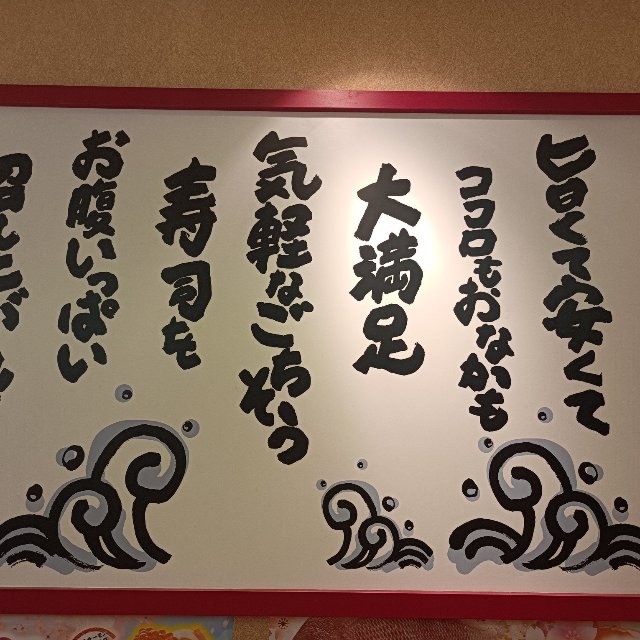 旨くて安くて
ココロもおなかも
大満足
気軽なごちそう
寿司を
お腹いっぱい